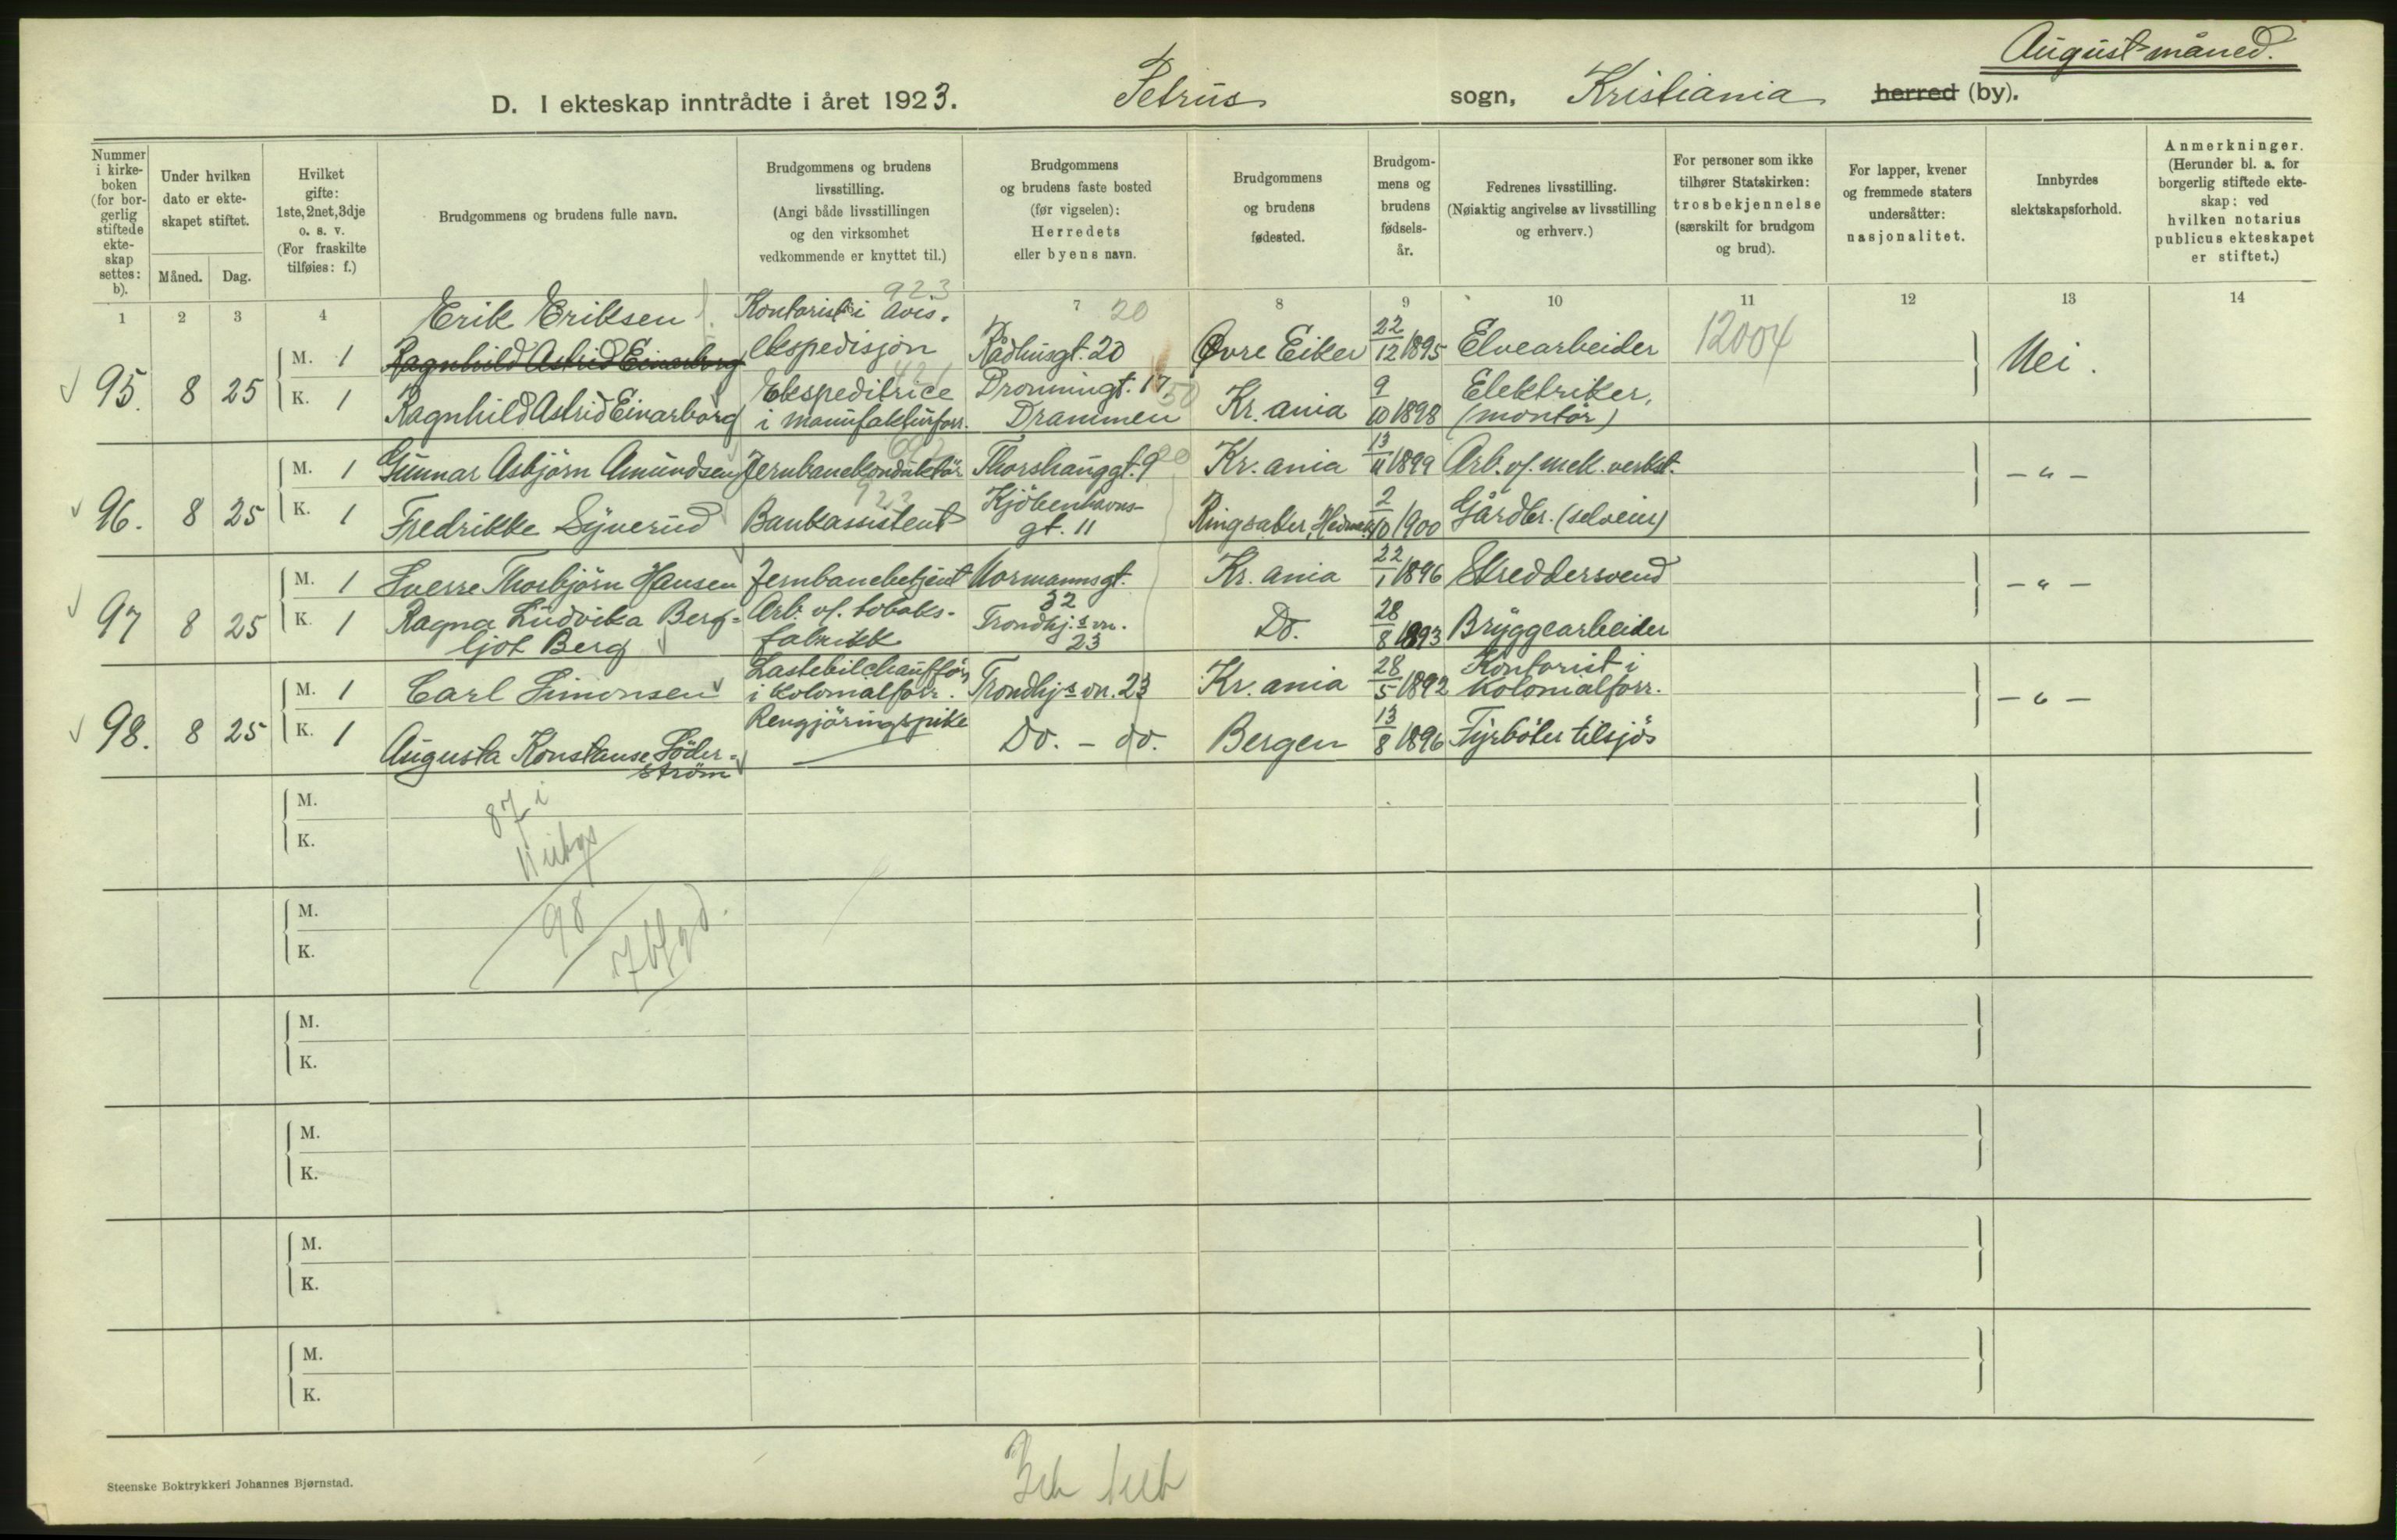 August måned.
D. I ekteskap inntrådte i året 1923. Petrus sogn, Kristiania herred (by).
Nummer i kirke-boken (for bor-gerlig stiftede ekte-skap settes: b).
Under hvilken dato er ekte-skapet stiftet.
Måned. Dag.
Hvilket gifte: 1ste, 2net, 3dje o. s. v. (For fraskilte tilføies: f.)
Brudgommens og brudens fulle navn.
Brudgommens og brudens livsstilling. (Angi både livsstillingen og den virksomhet vedkommende er knyttet til.)
Brudgommens og brudens faste bosted (før vigselen): Herredets eller byens navn.
Brudgommens og brudens fødested.
Brudgom-mens og brudens fødsels-år.
Fedrenes livsstilling. (Nøiaktig angivelse av livsstilling og erhverv.)
For personer som ikke tilhører Statskirken: trosbekjennelse (særskilt for brudgom og brud).
For lapper, kvener og fremmede staters undersåtter: nasjonalitet.
Innbyrdes slektskapsforhold.
Anmerkninger. (Herunder bl. a. for borgerlig stiftede ekte-skap: ved hvilken notarius publicus ekteskapet er stiftet.)
1 2 3 4 7 8 9 10 11 12 13 14
923 20 12004
95. 8 25 M. 1 Erik Eriksen Kontorist i avis. ekspedisjon Rådhusgt. 20 Øvre Eiker 22/12 1895 Elvearbeider Nei.
Ragnhild Astrid Einarborg
K. 1 Ragnhild Astrid Einarborg Ekspeditrice i manufakturforr. Dronningt. 17 Drammen Kr.ania 9/10 1898 Elektriker, (montör)
50
96. 8 25 M. 1 Gunnar Asbjörn Amundsen Jernbanekonduktör Thorshauggt. 9 Kr.ania 13/11 1899 Arb. v/. mek. verkst. - " -
923
K. 1 Fredrikke Syverud Bankassistent Kjöbenhavns-gt. 11 Ringsaker, Hedmark 2/10 1900 Gårdbr. (selveier)
97 8 25 M. 1 Sverre Thorbjörn Hansen Jernbanebetjent Normannsgt. 32 Kr.ania 22/1 1896 Skreddersvend - " -
K. 1 Ragna Ludvika Berg-ljot Berg Arb. v/. tobaks-fabrikk Trondhj.s vn. 23 Do. 28/8 1893 Bryggearbeider
98. 8 25 M. 1 Carl Simonsen Lastebilchaufför i kolonialforr. Trondhj.s vn. 23 Kr.ania 28/5 1892 Kontorist i kolonialforr. - " -
K. 1 Augusta Konstanse Söder-ström Rengjöringspike Do. - do. Bergen 13/8 1896 Fyrböter tilsjös
M.
K.
87 i
11 utbgs
98
M.
K.
M.
K.
M.
K.
M.
K.
M.
K.
Steenske Boktrykkeri Johannes Bjørnstad.